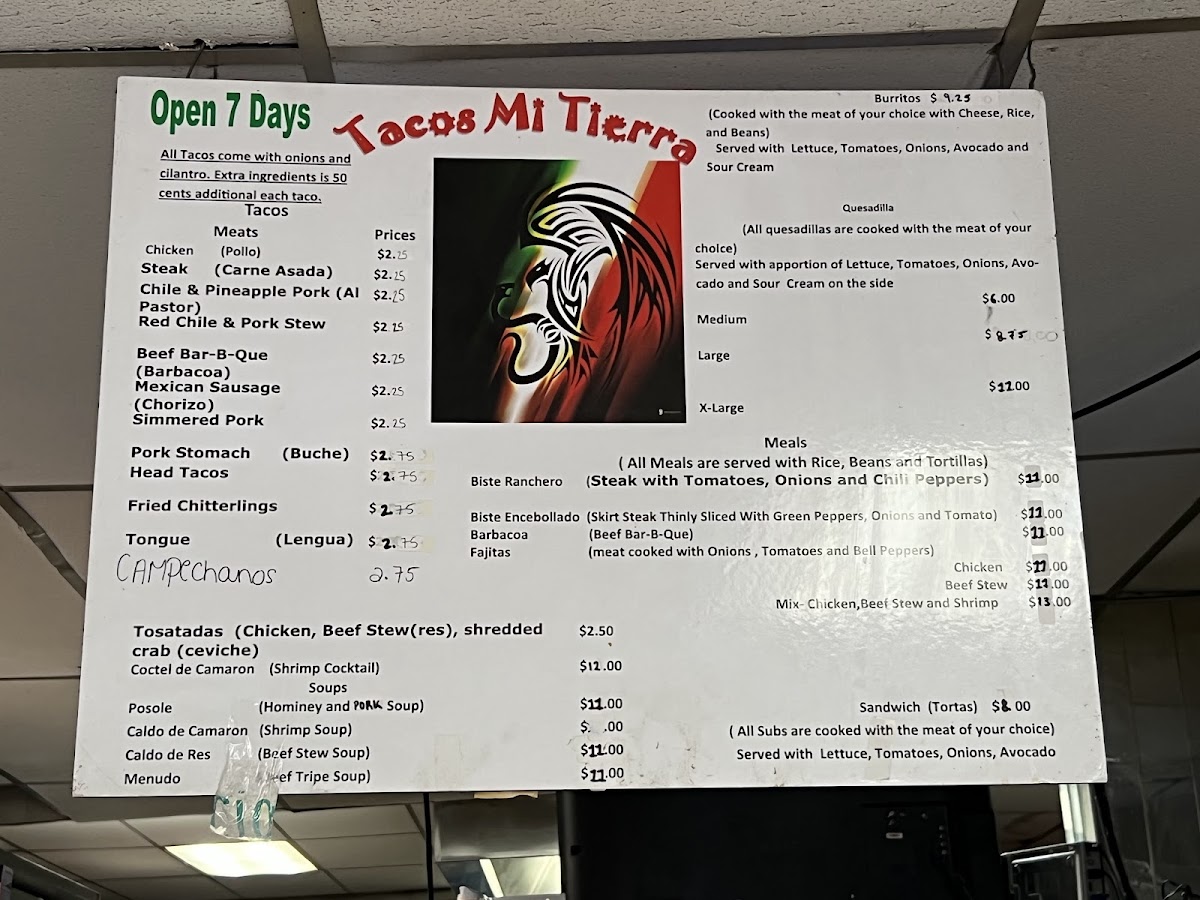 Open 7 Days
Tacos Mi Tierra
All Tacos come with onions and
cilantro. Extra ingredients is 50
cents additional each taco.
Tacos
Meats Prices
Chicken (Pollo) $2.25
Steak (Carne Asada) $2.25
Chile & Pineapple Pork (Al $2.25
Pastor)
Red Chile & Pork Stew $2.25
Beef Bar-B-Que $2.25
(Barbacoa)
Mexican Sausage $2.25
(Chorizo)
Simmered Pork $2.25
Pork Stomach (Buche) $2.75
Head Tacos $2.75
Fried Chitterlings $2.75
Tongue (Lengua) $2.75
CAMPechanos 2.75
Tosatadas (Chicken, Beef Stew(res), shredded $2.50
crab (ceviche)
Coctel de Camaron (Shrimp Cocktail) $12.00
Soups
Posole (Hominey and PORK Soup) $11.00
Caldo de Camaron (Shrimp Soup) $ .00
Caldo de Res (Beef Stew Soup) $11.00
Menudo ef Tripe Soup) $11.00
Burritos $9.25
(Cooked with the meat of your choice with Cheese, Rice,
and Beans)
Served with Lettuce, Tomatoes, Onions, Avocado and
Sour Cream
Quesadilla
(All quesadillas are cooked with the meat of your
choice)
Served with apportion of Lettuce, Tomatoes, Onions, Avo-
cado and Sour Cream on the side
$6.00
Medium
$8.75
Large
$12.00
X-Large
Meals
( All Meals are served with Rice, Beans and Tortillas)
Biste Ranchero (Steak with Tomatoes, Onions and Chili Peppers) $11.00
Biste Encebollado (Skirt Steak Thinly Sliced With Green Peppers, Onions and Tomato) $11.00
Barbacoa (Beef Bar-B-Que) $11.00
Fajitas (meat cooked with Onions , Tomatoes and Bell Peppers)
Chicken $11.00
Beef Stew $11.00
Mix- Chicken,Beef Stew and Shrimp $13.00
Sandwich (Tortas) $8.00
( All Subs are cooked with the meat of your choice)
Served with Lettuce, Tomatoes, Onions, Avocado